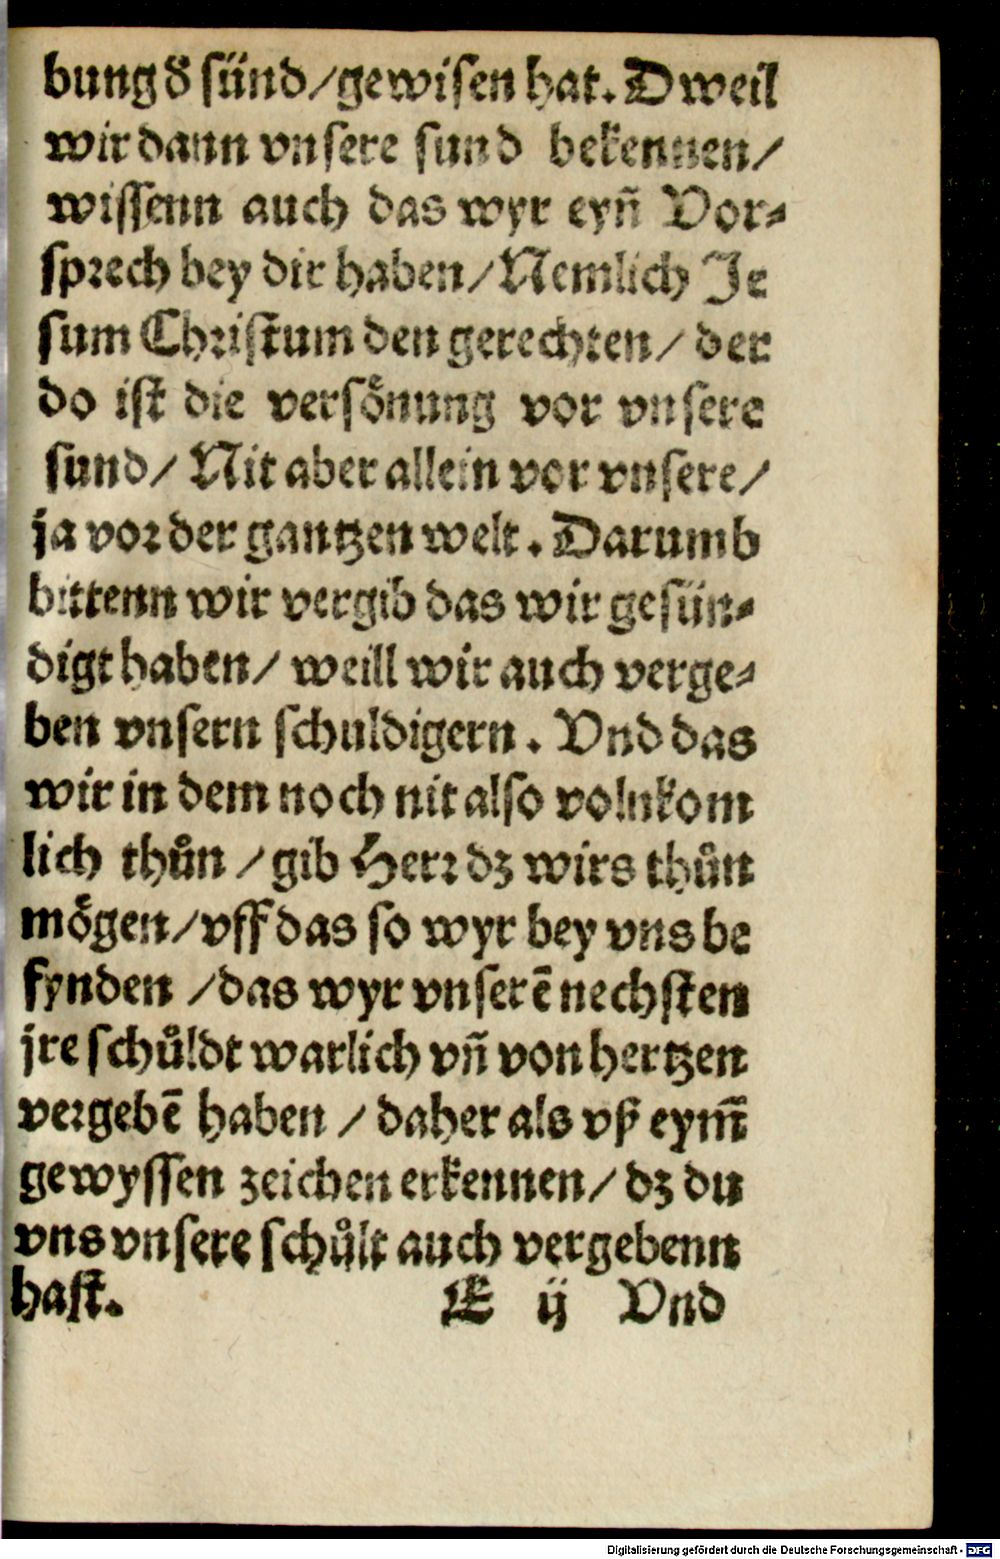 bung d̕ sünd/gewisen hat. Dweil
wir dann vnsere sund bekennen/
wissenn auch das wyr eyñ Vor⸗
sprech bey dir haben/Nemlich Je
sum Christum den gerechten/ der
do ist die versoͤnung vor vnsere
sund/ Nit aber allein vor vnsere/
ja vor der gantzen welt. Darumb
bittenn wir vergib das wir gesün⸗
digt haben/ weill wir auch verge⸗
ben vnsern schuldigern. Vnd das
wir in dem noch nit also volnkom
lich thůn /gib Herr dz wirs thůn
moͤgen/vff das so wyr bey vns be
fynden /das wyr vnserē nechsten
jre schůldt warlich vñ von hertzen
vergebē haben / daher als vß eym̄
gewyssen zeichen erkennen/ dz du
vns vnsere schůlt auch vergebenn
hast. E ij Vnd
Digitalisierung gefördert durch die Deutsche Forschungsgemeinschaft - DFG